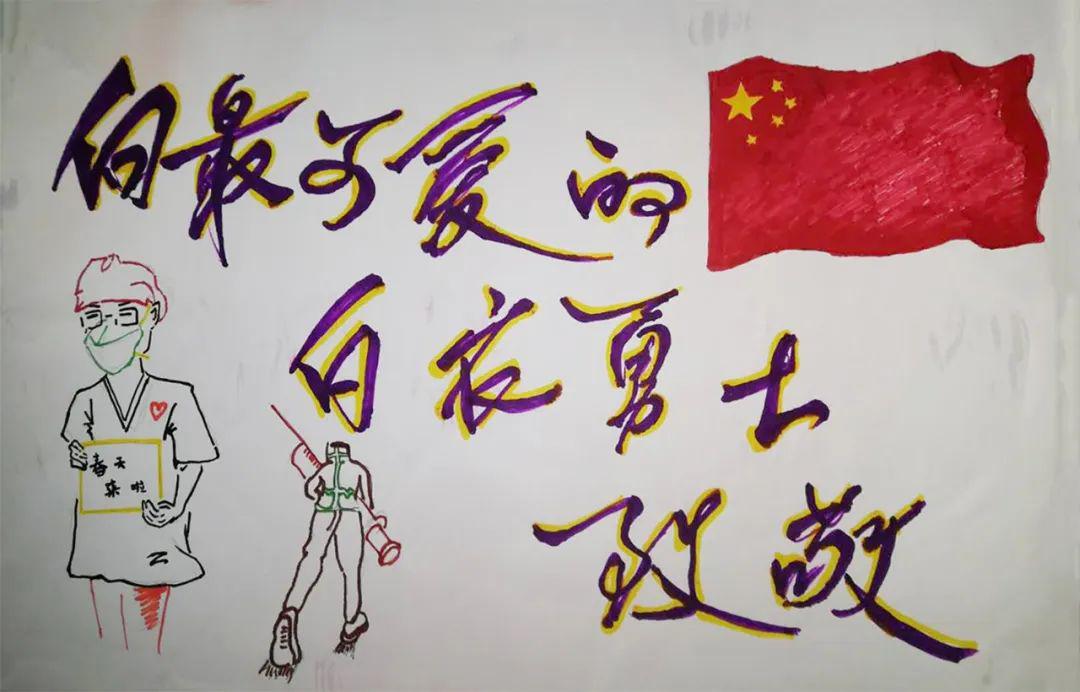 向最可爱的
白衣勇士
致敬
春天
来啦